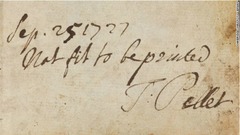 Sep. 25 1727
Not fit to be printed
T. Pellet